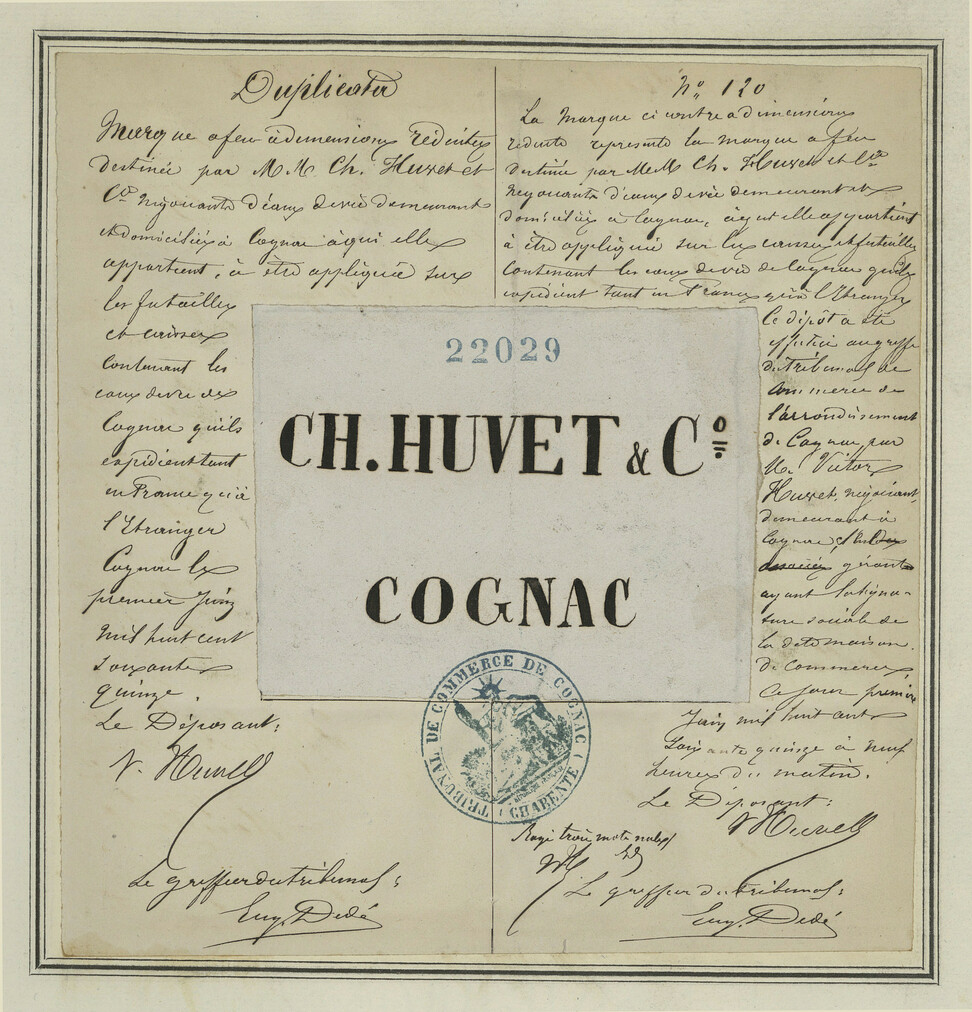 Duplicata
Marque a feu à dimensions réduites
destinée par M.M. Ch. Huvet et
Cie négociants d'eaux de vie demeurant
et domiciliés à Cognac à qui elle
appartient, à être appliquée sur
les futailles
et caisses
contenant les
eaux de vie de
Cognac qu'ils
expédient tant
en France qu'à
l'Etranger
Cognac le
premier Juin
mil huit cent
soixante
quinze.
Le Déposant:
V. Huvet
Le greffier du tribunal:
Eug. Dedé
No 120
La marque ci contre a dimensions
réduite représente la marque a feu
destinée par M.M. Ch. Huvet et Cie
négociants d'eaux de vie demeurant et
domiciliés à Cognac, à qui elle appartient
à être appliquée sur les caisses et futailles
contenant les eaux de vie de Cognac qu'ils
expédient tant en France qu'à l'Etranger
Ce dépôt a été
effectué au greffe
du Tribunal de
Commerce de
l'arrondissement
de Cognac, par
M. Victor
Huvet, négociant,
demeurant à
Cognac,
associés gérant
ayant la signa-
ture sociale de
la dite maison
de Commerce,
Ce jour premier
Juin mil huit cent
soixante quinze à neuf
heures du matin.
Le Déposant:
V Huvet
Rayé trois mots nuls
VH ED
Le greffier du tribunal:
Eug. Dedé
22029
CH. HUVET & Co
COGNAC
TRIBUNAL DE COMMERCE DE COGNAC
(CHARENTE)